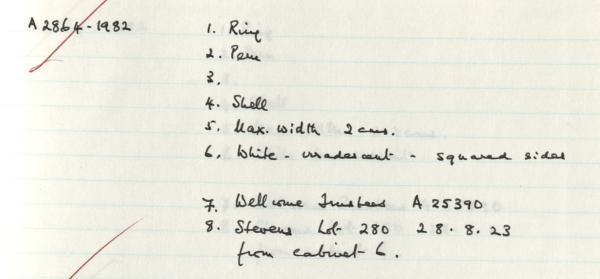 A 2864-1982 1. Ring
2. Peru
3.
4. Shell
5. Max. width 2 cms.
6. White - irradescent - squared sides
7. Wellcome Trustees A 25390
8. Stevens Lot 280 28.8.23
from cabinet 6.